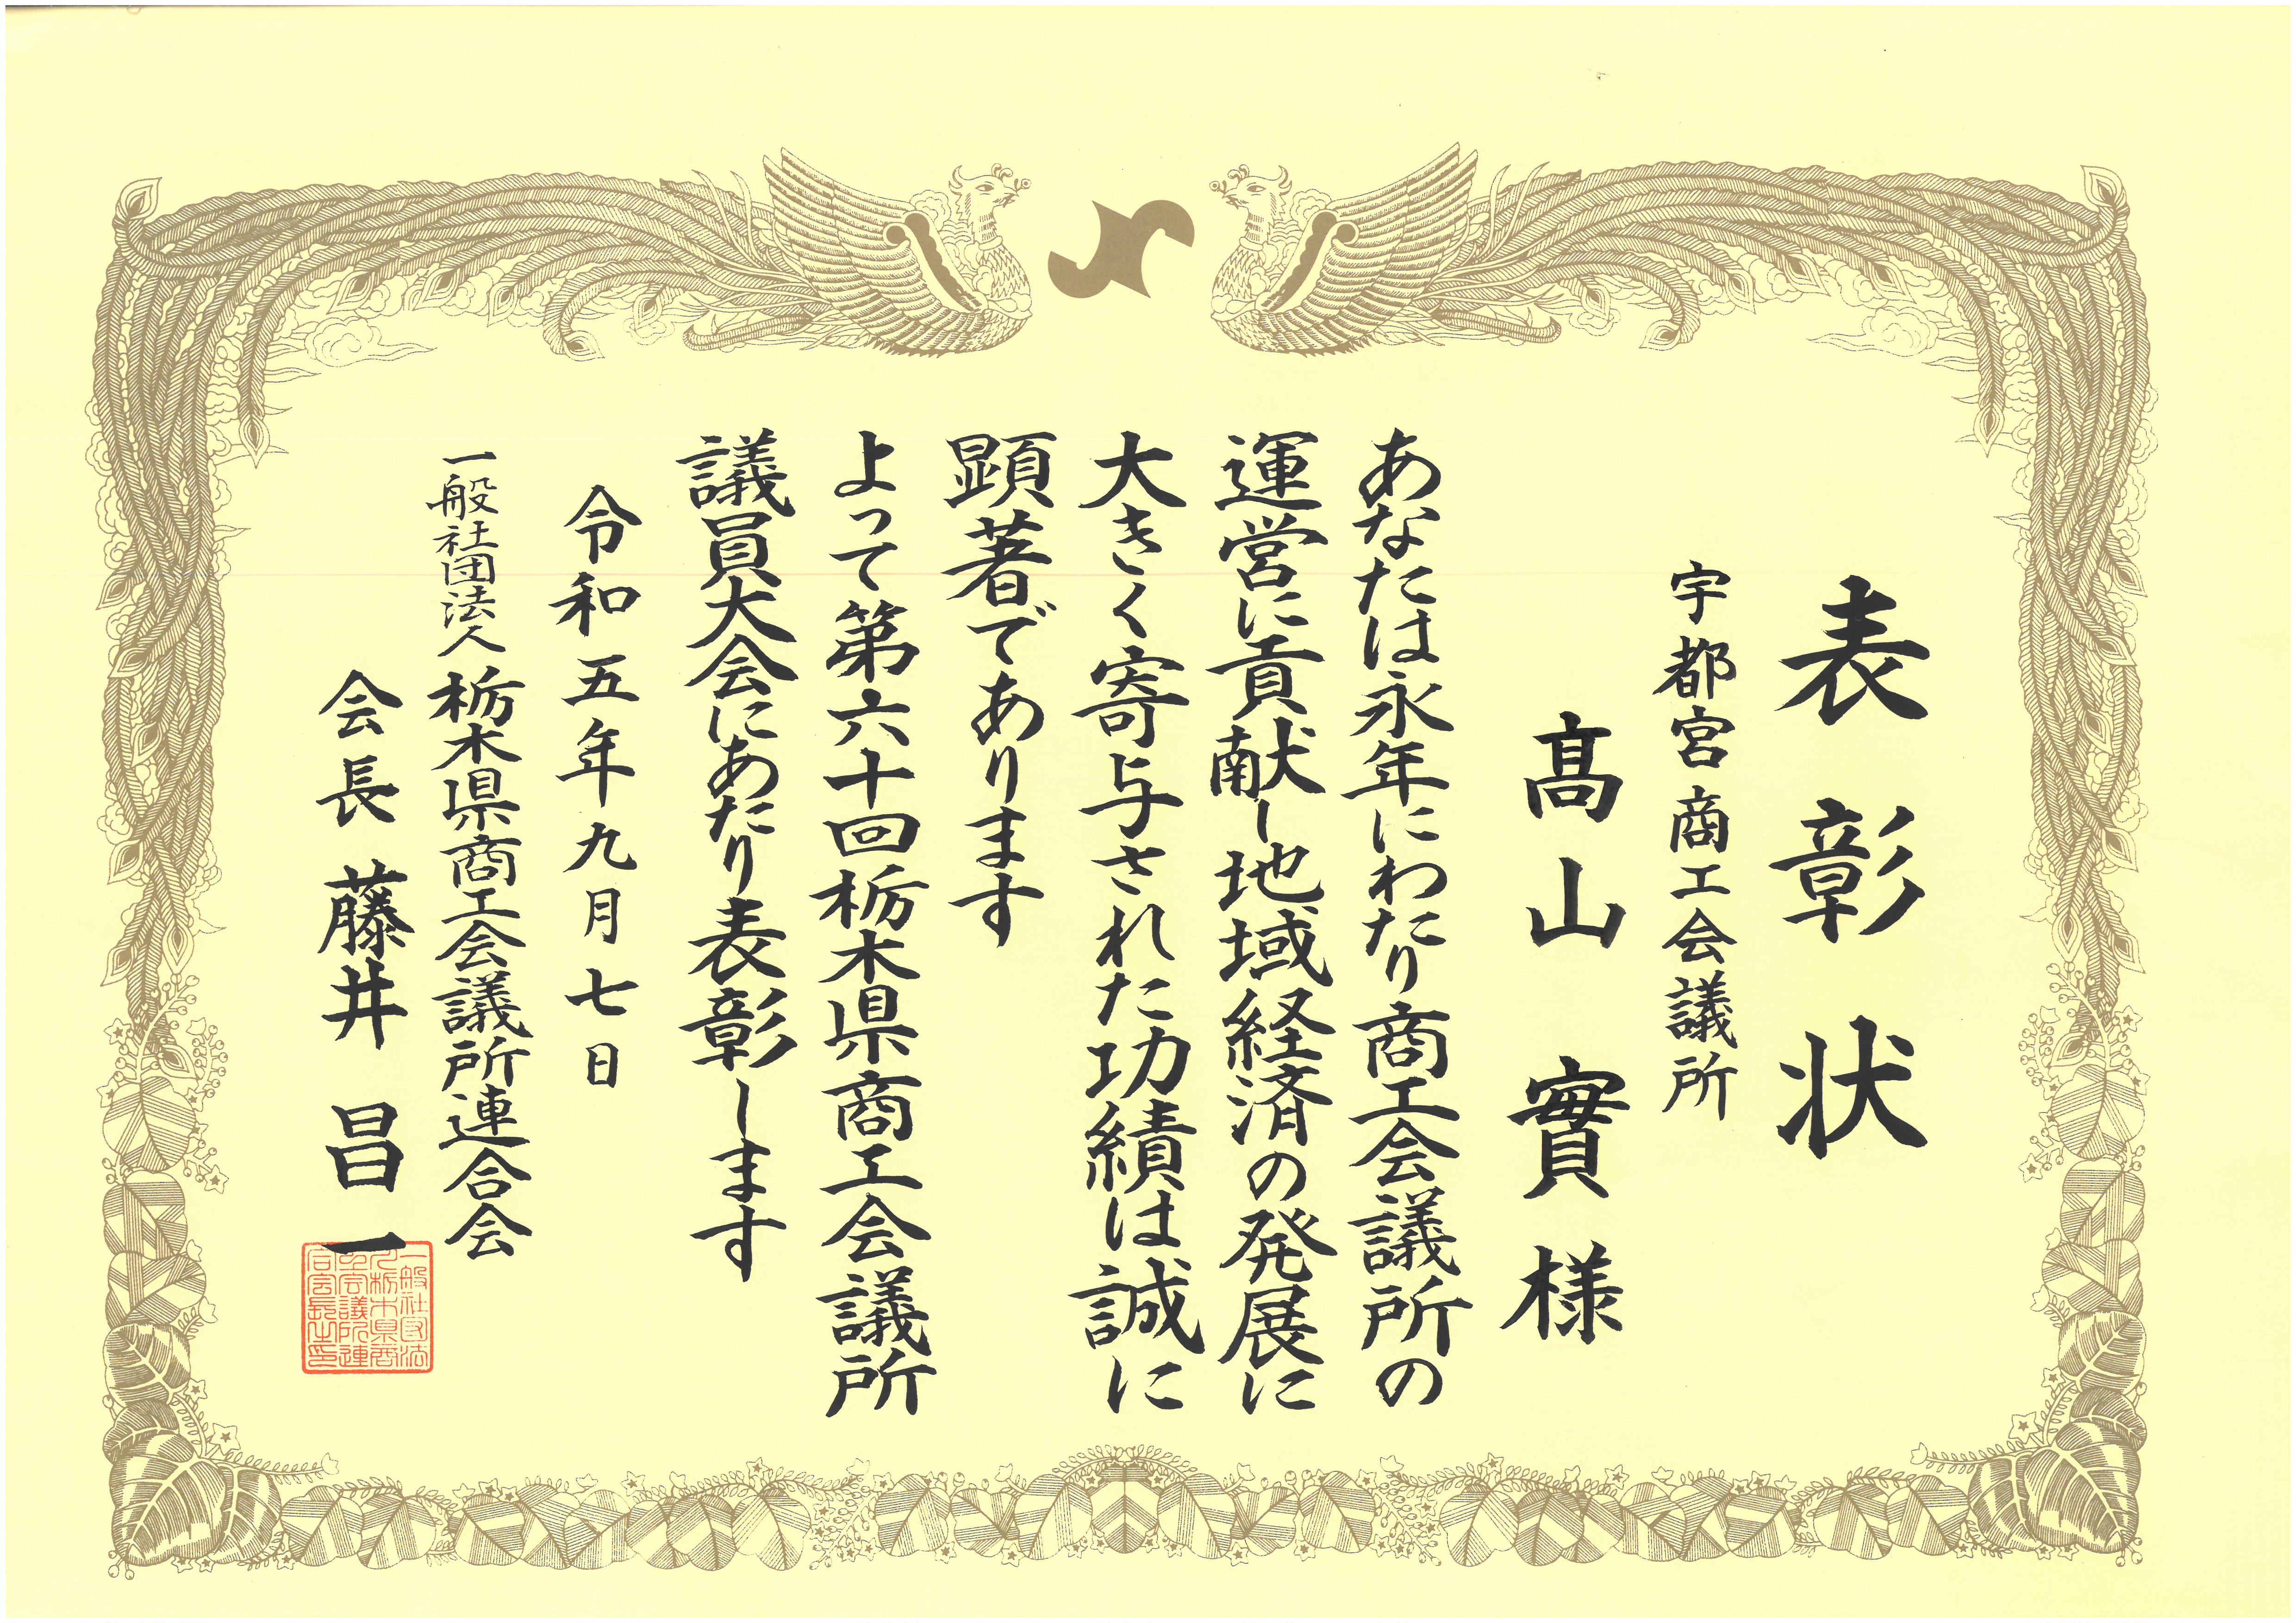 表彰状
宇都宮商工会議所
髙山實様
あなたは永年にわたり商工会議所の
運営に貢献し地域経済の発展に
大きく寄与された功績は誠に
顕著であります
よって第六十回栃木県商工会議所
議員大会にあたり表彰します
令和五年九月七日
一般社団法人栃木県商工会議所連合会
会長藤井昌一
一般社団法
人栃木県商
工会議所連
合会長之印